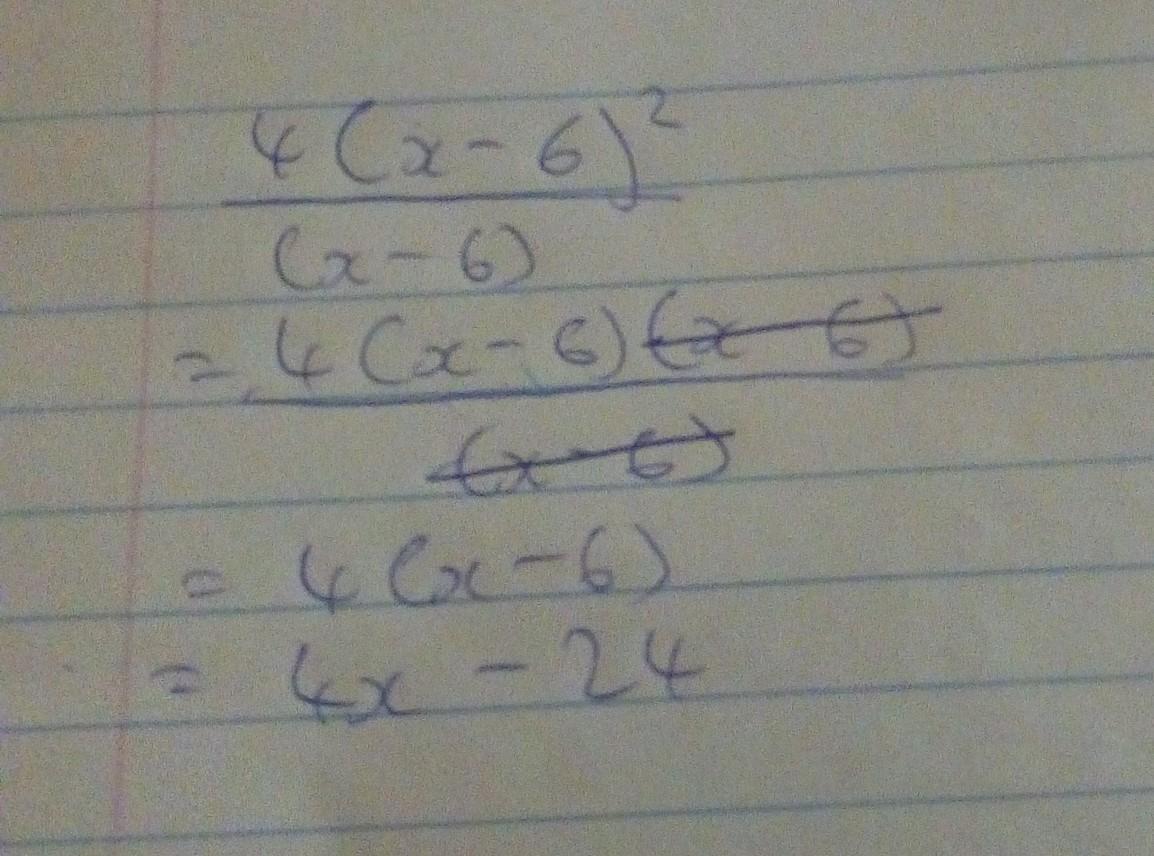 4(x-6)²
(x-6)
= 4(x-6)(x-6)
(x-6)
= 4(x-6)
= 4x - 24